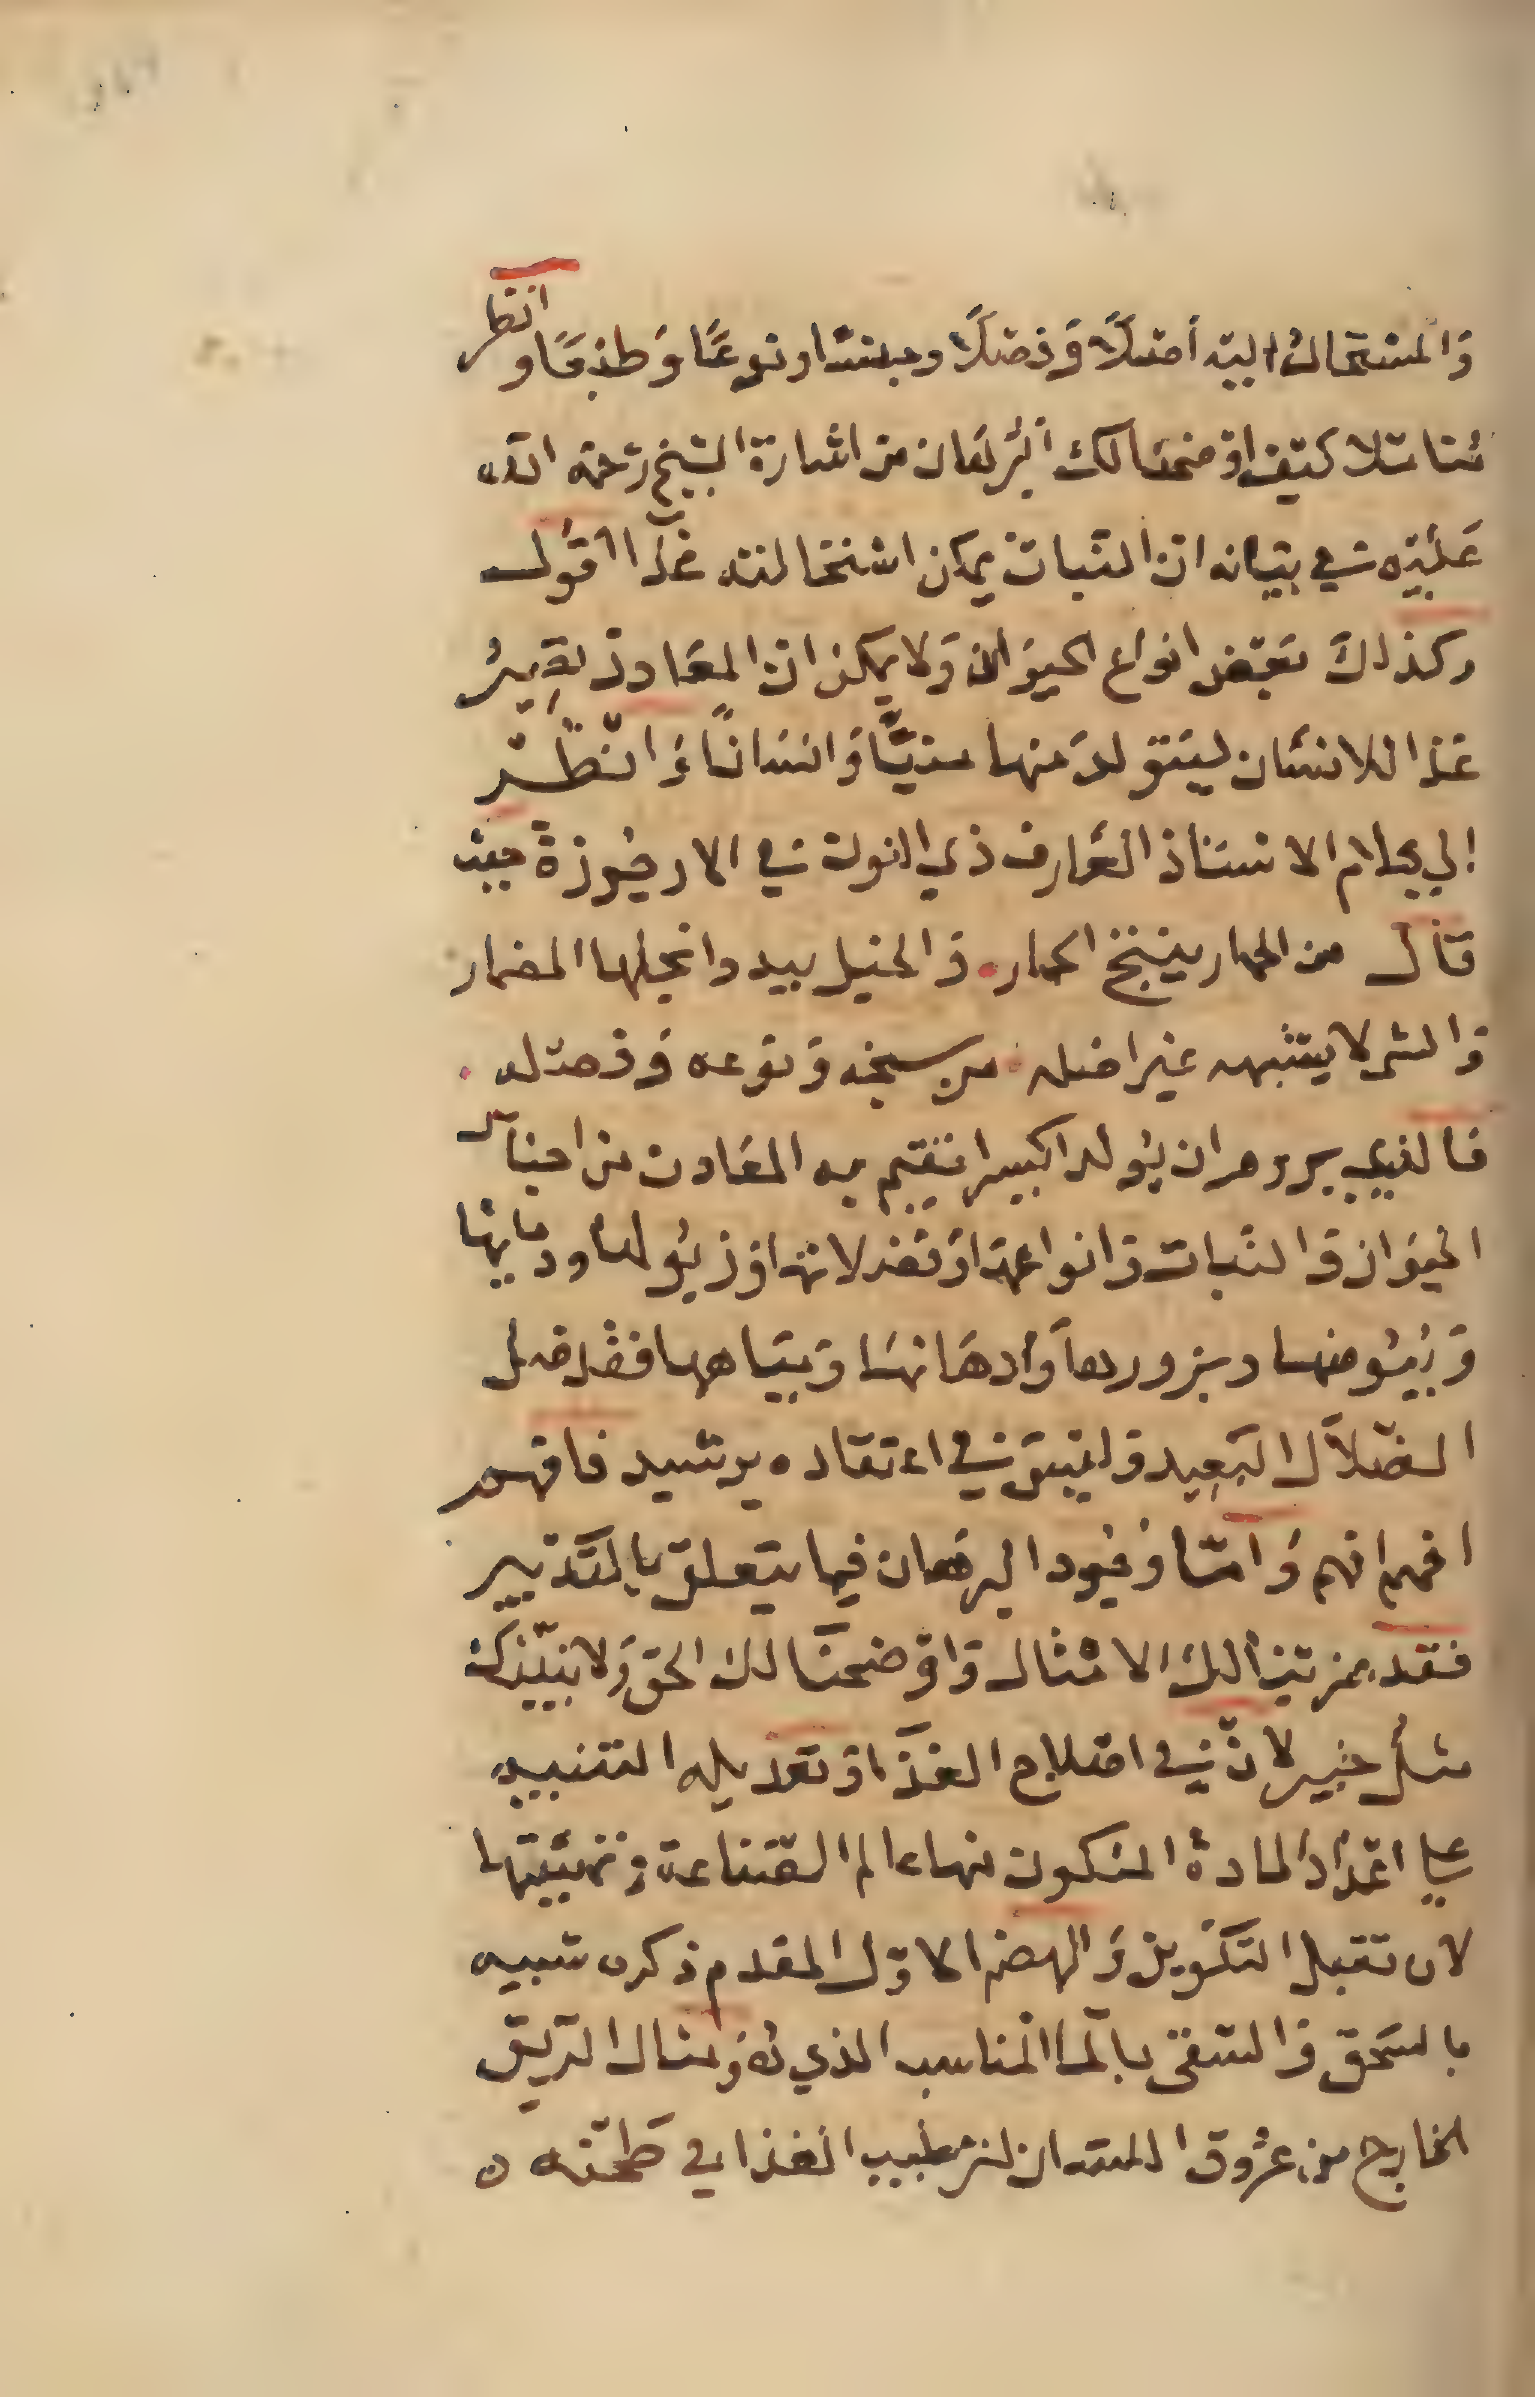 والمستحال اليه اصلاً وفصلاً وجنسا ونوعًا وطبعًا وانظر
متاملا كيف اوضحنا لك البرهان من اشارة الشيخ رحمة الله
عليه في بيانه ان النبات يمكن استحالته غذا اقول
وكذلك بعض انواع الحيوان ولا يمكن ان المعادن تصير
غذا للانسان ليتولد منها منيًّا وانسانًا وانظر
الي كلام الاستاذ العارف ذي النون في الارجوزة حيث
قال من الحمار ينتج الحمار والخيل يبدو انجلها المضمار
والشي لا يشبه غير اصله من سنخه ونوعه وفصله
فالذي يروم ان يولد اكسيرا يقيم به المعادن من اجناس
الحيوان والنبات وانواعها وفضلاتها وزبولها ودمايها
وبيوضها وبزورها وادهانها ومياهها فقد ضل
الضلال البعيد وليس في اعتقاده برشيد فافهم
افهم افهم واما وجود البرهان فيما يتعلق بالتدبير
فقد ضربنا لك الامثال واوضحنا لك الحق ولا ينبئك
مثل خبير لان في اصلاح الغذا وتعديله التنبيه
علي اعداد المادة المتكون منها عالم الصناعة وتهيئتها
لان تقبل التكوين والهضم الاول المقدم ذكره شبيه
بالسحق والسقى بالما المناسب الذي هو مثال الريق
الخارج من عروق اللسان لترطيب الغذا في طحنه